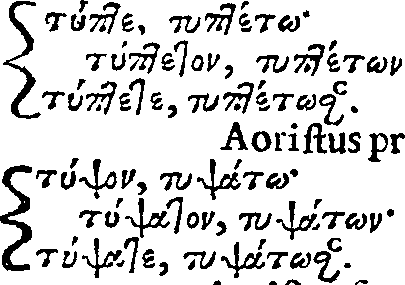 τύπτε, τυπτέτω·
τύπτετον, τυπτέτων
τύπτετε, τυπτέτωσαν.
Aoriſtus pr
τύψον, τυψάτω·
τύψατον, τυψάτων·
τύψατε, τυψάτωσαν.